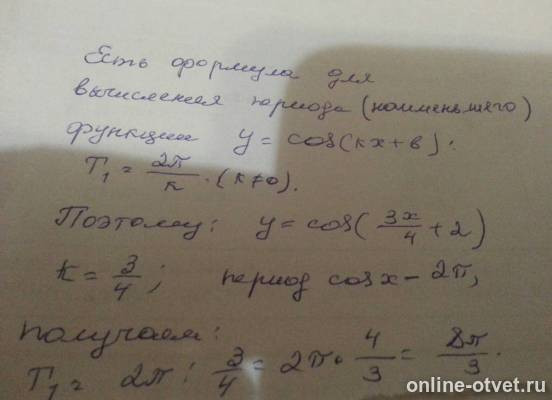 Есть формула для
вычисления периода (наименьшего)
функции y = cos(kx+b):
T₁ = 2π/k · (k≠0).
Поэтому: y = cos(3x/4 + 2)
k = 3/4; период cosx – 2π,
получаем:
T₁ = 2π : 3/4 = 2π · 4/3 = 8π/3.
online-otvet.ru